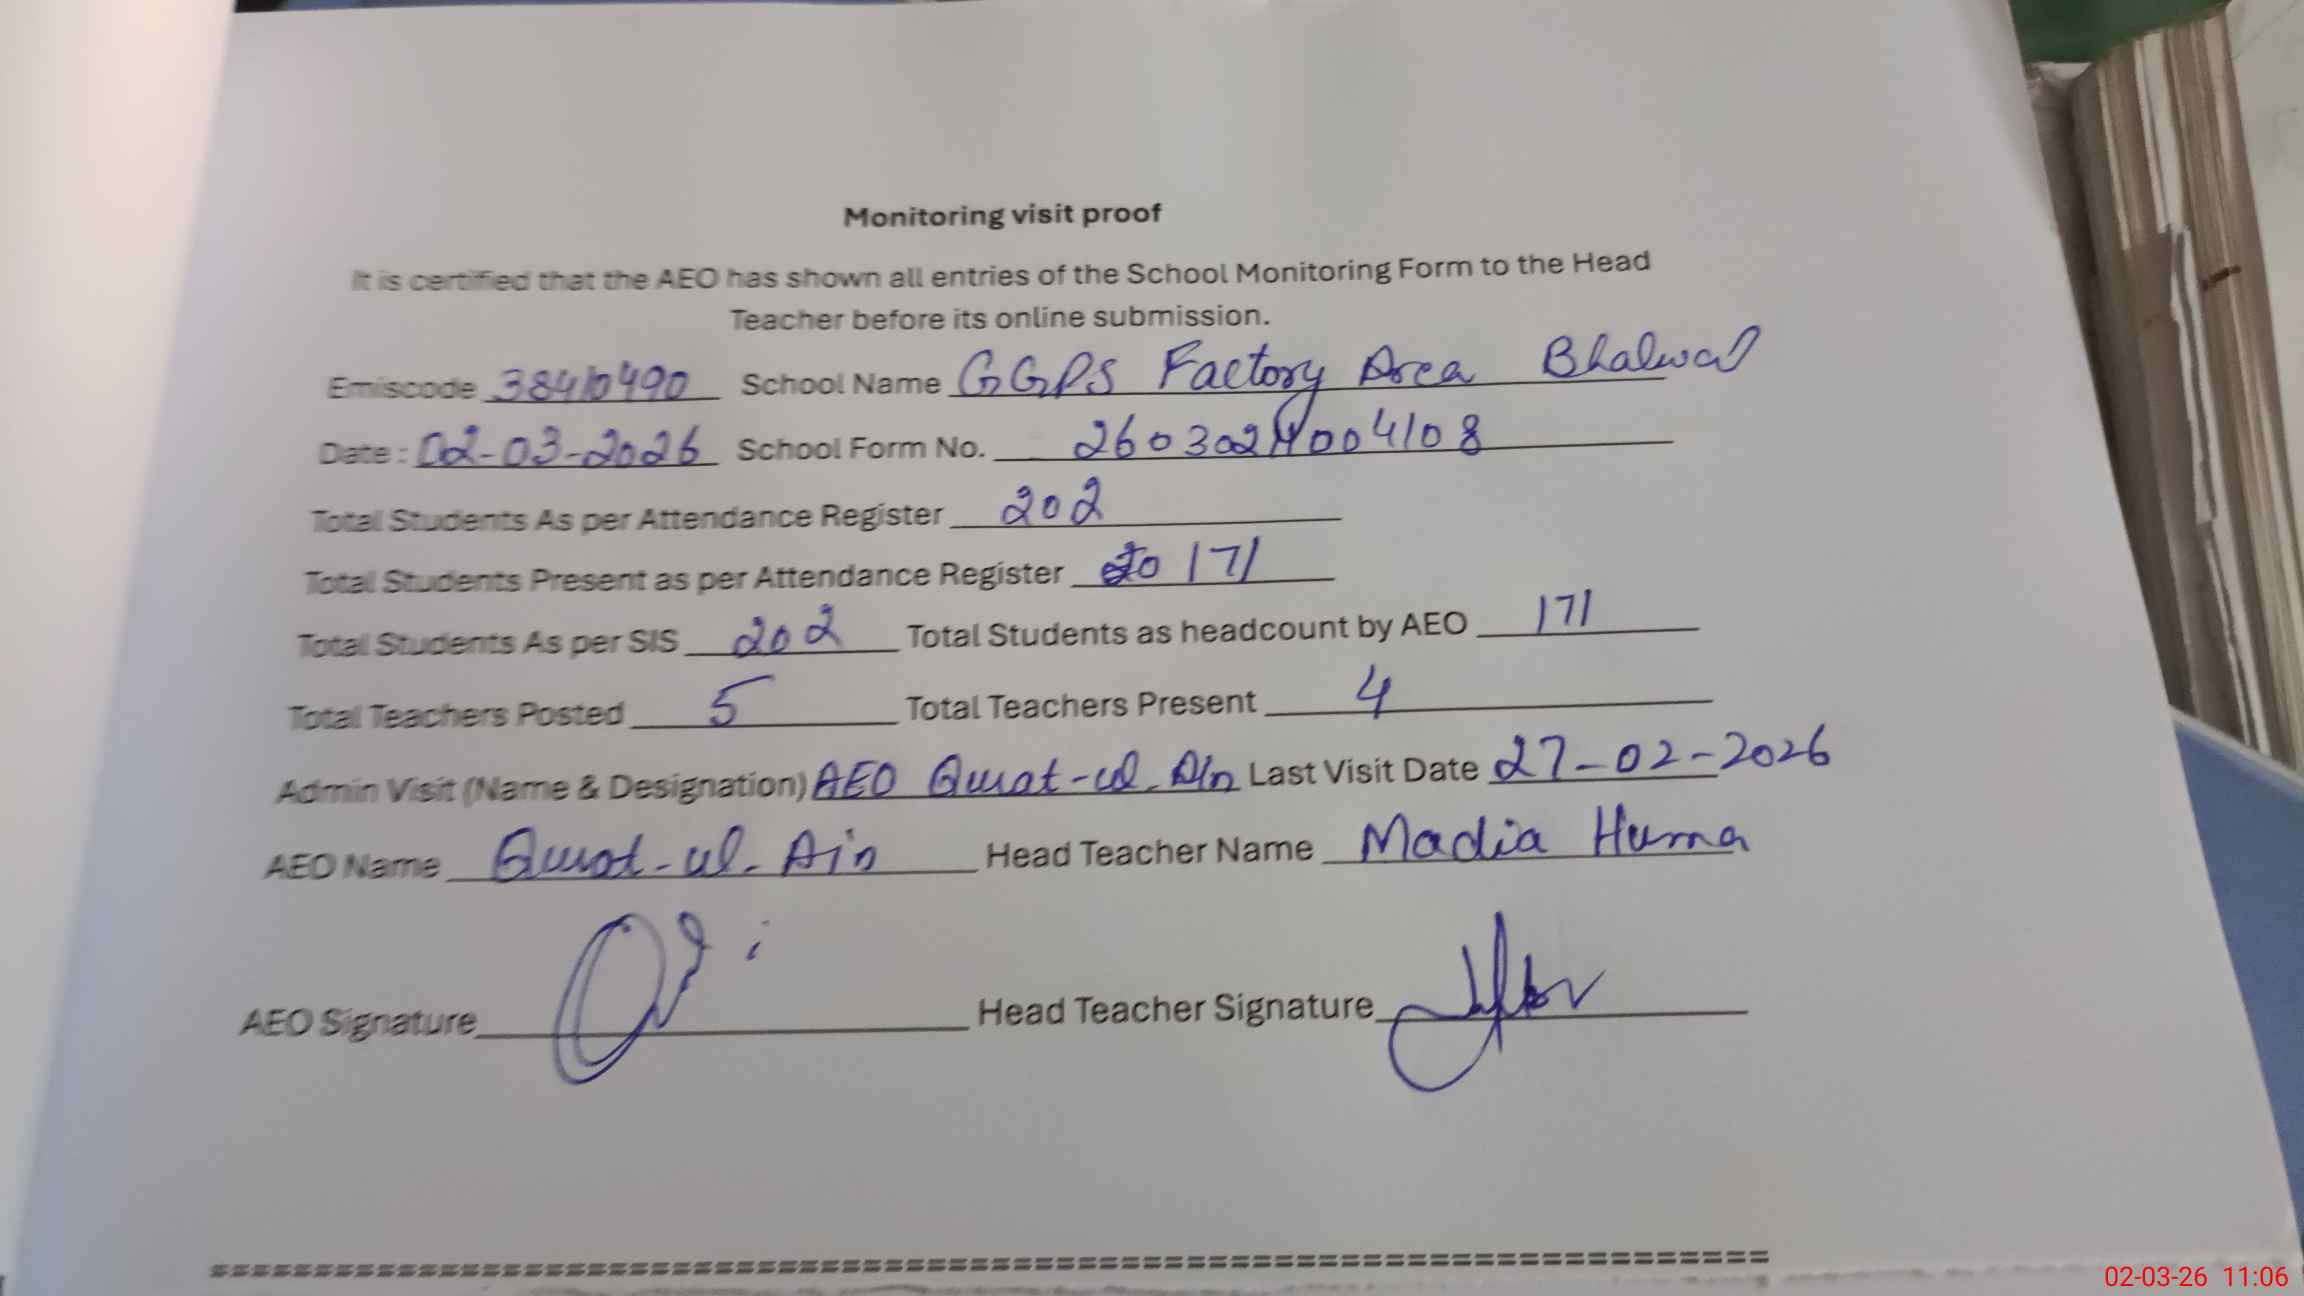 Monitoring visit proof
It is certified that the AEO has shown all entries of the School Monitoring Form to the Head
Teacher before its online submission.
Emiscode 38410490 School Name GGPS Factory Area Bhalwal
Date : 02-03-2026 School Form No.
Total Students As per Attendance Register 202
Total Students Present as per Attendance Register 171
Total Students As per SIS 202 Total Students as headcount by AEO 171
Total Teachers Posted 5 Total Teachers Present 4
Admin Visit (Name & Designation) AEO Qurat-ul-Ain Last Visit Date 27-02-2026
AEO Name Qurat-ul-Ain Head Teacher Name Madia Huma
AEO Signature Head Teacher Signature
==========
02-03-26 11:06